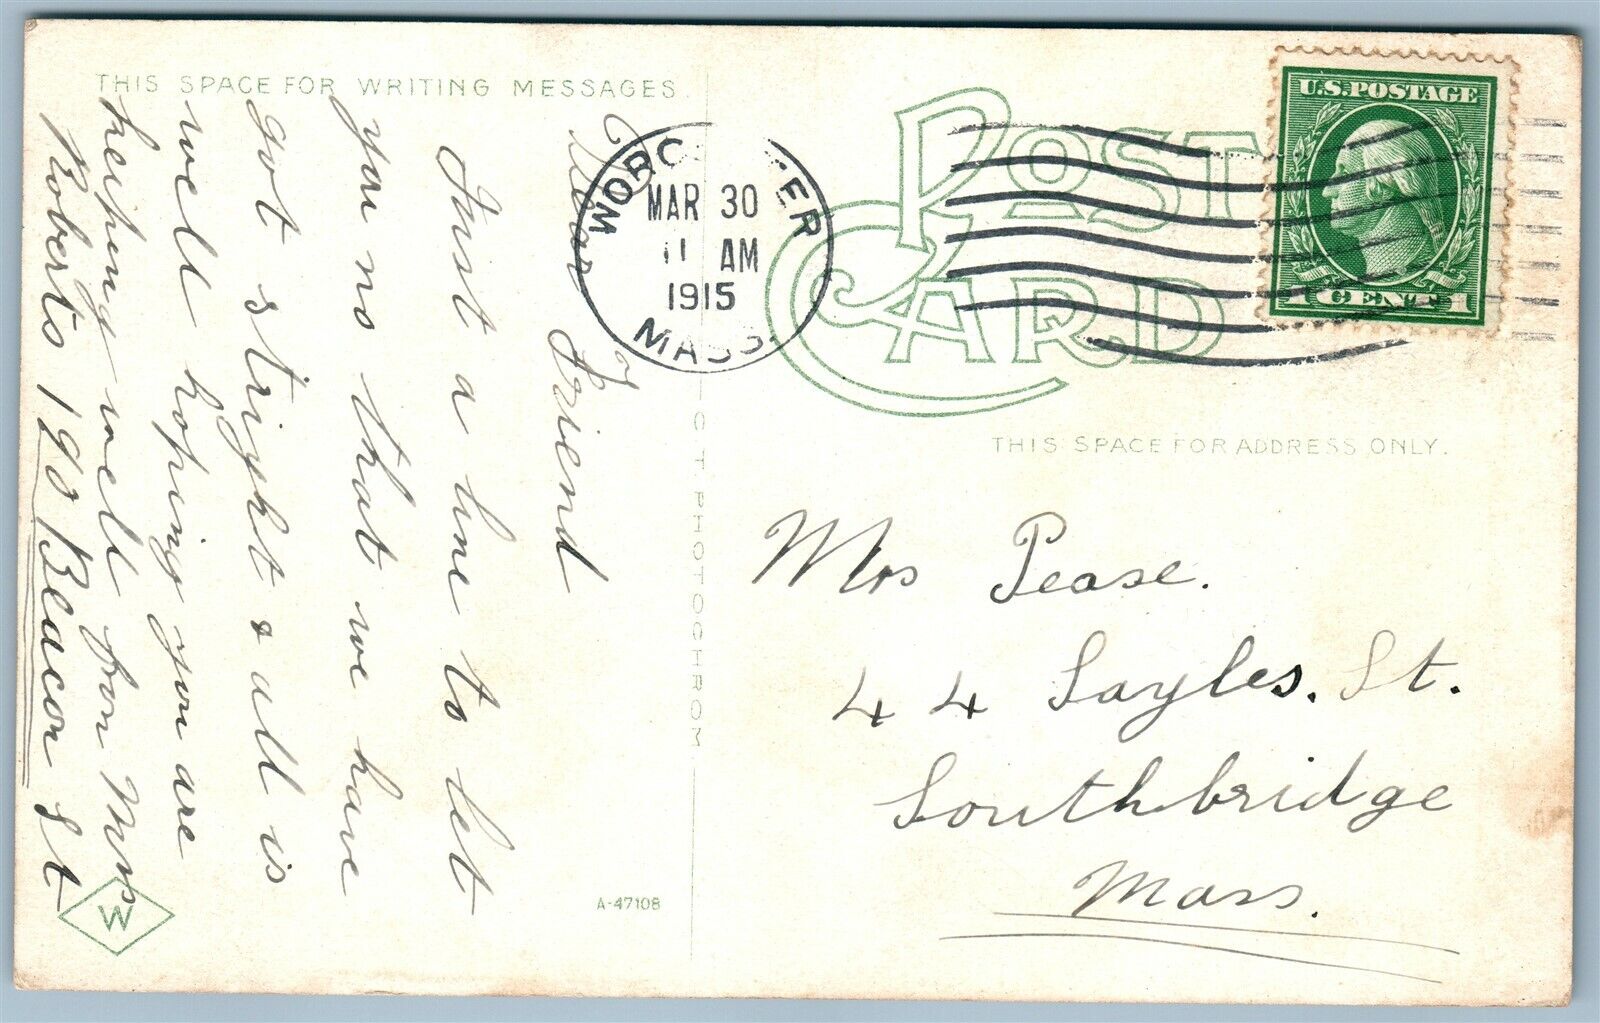 THIS SPACE FOR WRITING MESSAGES.
Dear Friend
Just a line to let
you no that we have
got stright & all is
well hoping you are
keeping well from Mrs
Roberts 190 Beacon St
W
A-47108
C T PHOTOCHROM
WORCESTER
MAR 30
11 AM
1915
MASS.
POST CARD
U.S. POSTAGE
1 CENT 1
THIS SPACE FOR ADDRESS ONLY.
Mrs Pease.
44 Sayles. St.
Southbridge
Mass.